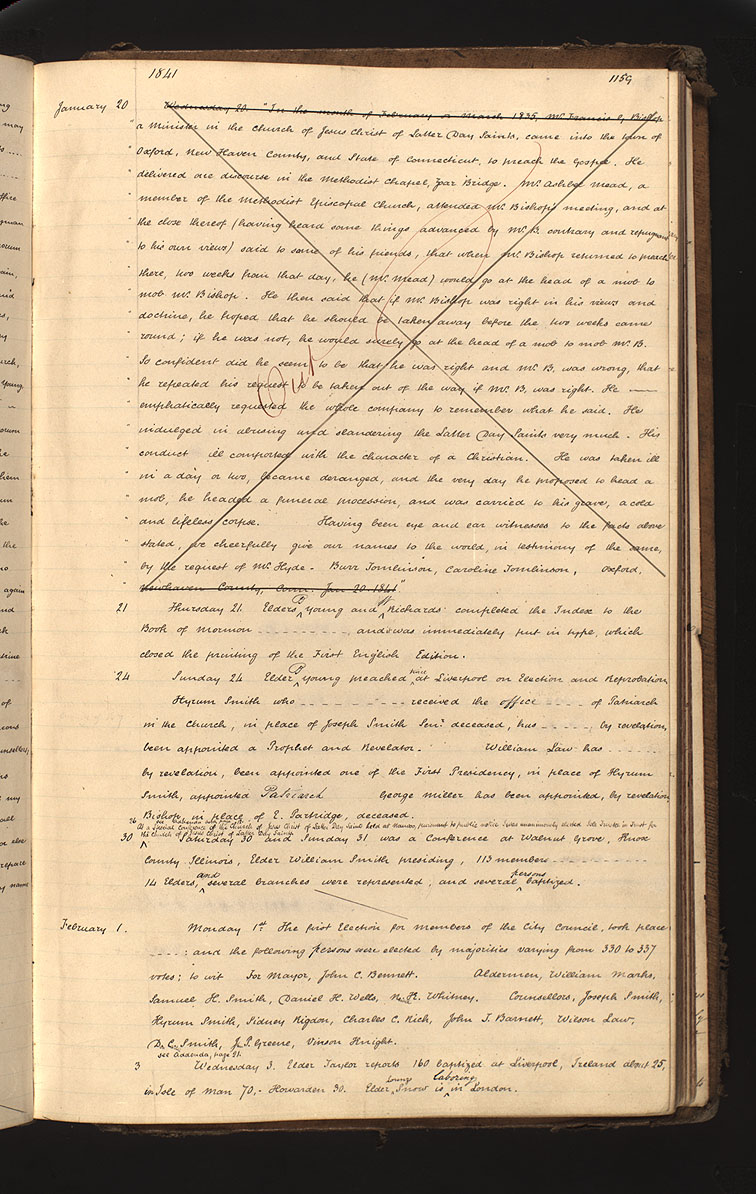 1841 1159
January 20 Wednesday 20. "In the month of February or March 1835, Mr. Francis G. Bishop
a Minister in the Church of Jesus Christ of Latter Day Saints, came into the town of
Oxford, New Haven County, and State of Connecticut, to preach the Gospel. He
delivered one discourse in the Methodist Chapel, Zoar Bridge. Mr. Ashbel Mead, a
member of the Methodist Episcopal Church, attended Mr. Bishop's meeting, and at
the close thereof (having heard some things advanced by Mr. B. contrary and repugnant
to his own views) said to some of his friends, that when Mr. Bishop returned to preach
there, two weeks from that day, he (Mr. Mead) would go at the head of a mob to
mob Mr. Bishop. He then said that if Mr. Bishop was right in his views and
doctrine, he hoped that he should be taken away before the two weeks came
round; if he was not, he would surely go at the head of a mob to mob Mr. B.
So confident did he seem to be that he was right and Mr. B. was wrong, that
he repeated his request to be taken out of the way if Mr. B. was right. He ——
emphatically requested the whole company to remember what he said. He
indulged in abusing and slandering the Latter Day Saints very much. His
conduct ill comported with the character of a Christian. He was taken ill
in a day or two, became deranged, and the very day he proposed to head a
mob, he headed a funeral procession, and was carried to his grave, a cold
and lifeless corpse. Having been eye and ear witnesses to the facts above
stated, we cheerfully give our names to the world, in testimony of the same,
by the request of Mr. Hyde - Burr Tomlinson, Caroline Tomlinson, Oxford,
Newhaven County, Conn. Jan 20. 1841"
Out
21 Thursday 21. Elders B Young and W Richards completed the Index to the
Book of Mormon - - - - - - - - , and was immediately put in type, which
closed the printing of the First English Edition.
24 Sunday 24 Elder B Young preached twice at Liverpool on Election and Reprobation
Hyrum Smith who - - - - - - - - received the office - - - - of Patriarch
in the Church, in place of Joseph Smith Senr. deceased, has - - - - , by revelation,
been appointed a Prophet and Revelator. William Law has - - - - - -
by revelation, been appointed one of the First Presidency, in place of Hyrum
Smith, appointed Patriarch George Miller has been appointed, by revelation
Bishop in place of E. Partridge, deceased.
At a Special Conference of the Church of Jesus Christ of Latter Day Saints held at Nauvoo, pursuant to public notice I was unanimously elected Sole Trustee in Trust for
the Church of Jesus Christ of Latter Day Saints
30 Saturday 30 and Sunday 31 was a Conference at Walnut Grove, Knox
County Illinois, Elder William Smith presiding, 113 members - - - - - - - -
14 Elders, and several branches were represented; and several persons baptized.
February 1. Monday 1st. The first Election for members of the City Council, took place
- - - - : and the following persons were elected by majorities varying from 330 to 337
votes; to wit For Mayor, John C. Bennett. Aldermen, William Marks,
Samuel H. Smith, Daniel H. Wells, N. K. Whitney. Counsellors, Joseph Smith,
Hyrum Smith, Sidney Rigdon, Charles C. Rich, John T. Barnett, Wilson Law,
D. C. Smith, J. P. Greene, Vinson Knight.
see addenda, page 21.
3 Wednesday 3. Elder Taylor reports 160 baptized at Liverpool, Ireland about 25,
in Isle of Man 70, - Howarden 30. Elder Lorenzo Snow is laboring in London.